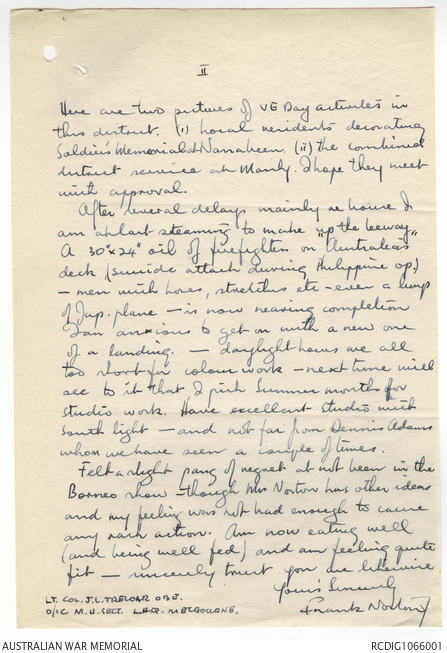 II
Here are two pictures of VE Day activites in
this district. (i) Local residents decorating
Soldier's Memorial at Narrabeen. (ii) the combined
district service at Manly. I hope they meet
with approval.
After several delays mainly re house I
am at last steaming to make "up the leeway".
A 30"x24" oil of firefighters on Australia's
deck (suicide attack during Philippine op.)
- men with hoses, stretchers etc - even a lump
of Jap. plane - is now nearing completion
I am anxious to get on with a new one
of a landing. - daylight hours are all
too short for colour work - next time will
see to it that I pick Summer months for
studio work. Have excellent studio with
South light - and not far from Dennis Adams
whom we have seen a couple of times.
Felt a slight pang of regret at not been in the
Borneo show - though Mrs Norton has other ideas
and my feeling was not bad enough to cause
any rash action. Am now eating well
(and being well fed) and am feeling quite
fit - sincerely trust you are likewise
Yours Sincerely
Frank Norton
LT. COL. J. L. TRELOAR OBE.
O/IC M.H. SECT. LHQ. MELBOURNE.
AUSTRALIAN WAR MEMORIAL
RCDIG1066001